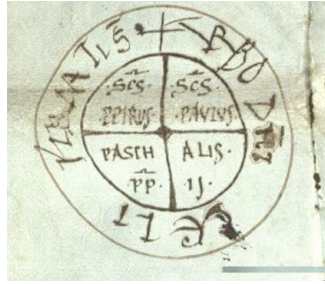 + VERBO DN̄I CELI FIRMATI S̄
·SC̄S· ·SC̄S·
PETRUS· PAULUS·
PASCH ALIS·
P̄P̄· IJ·